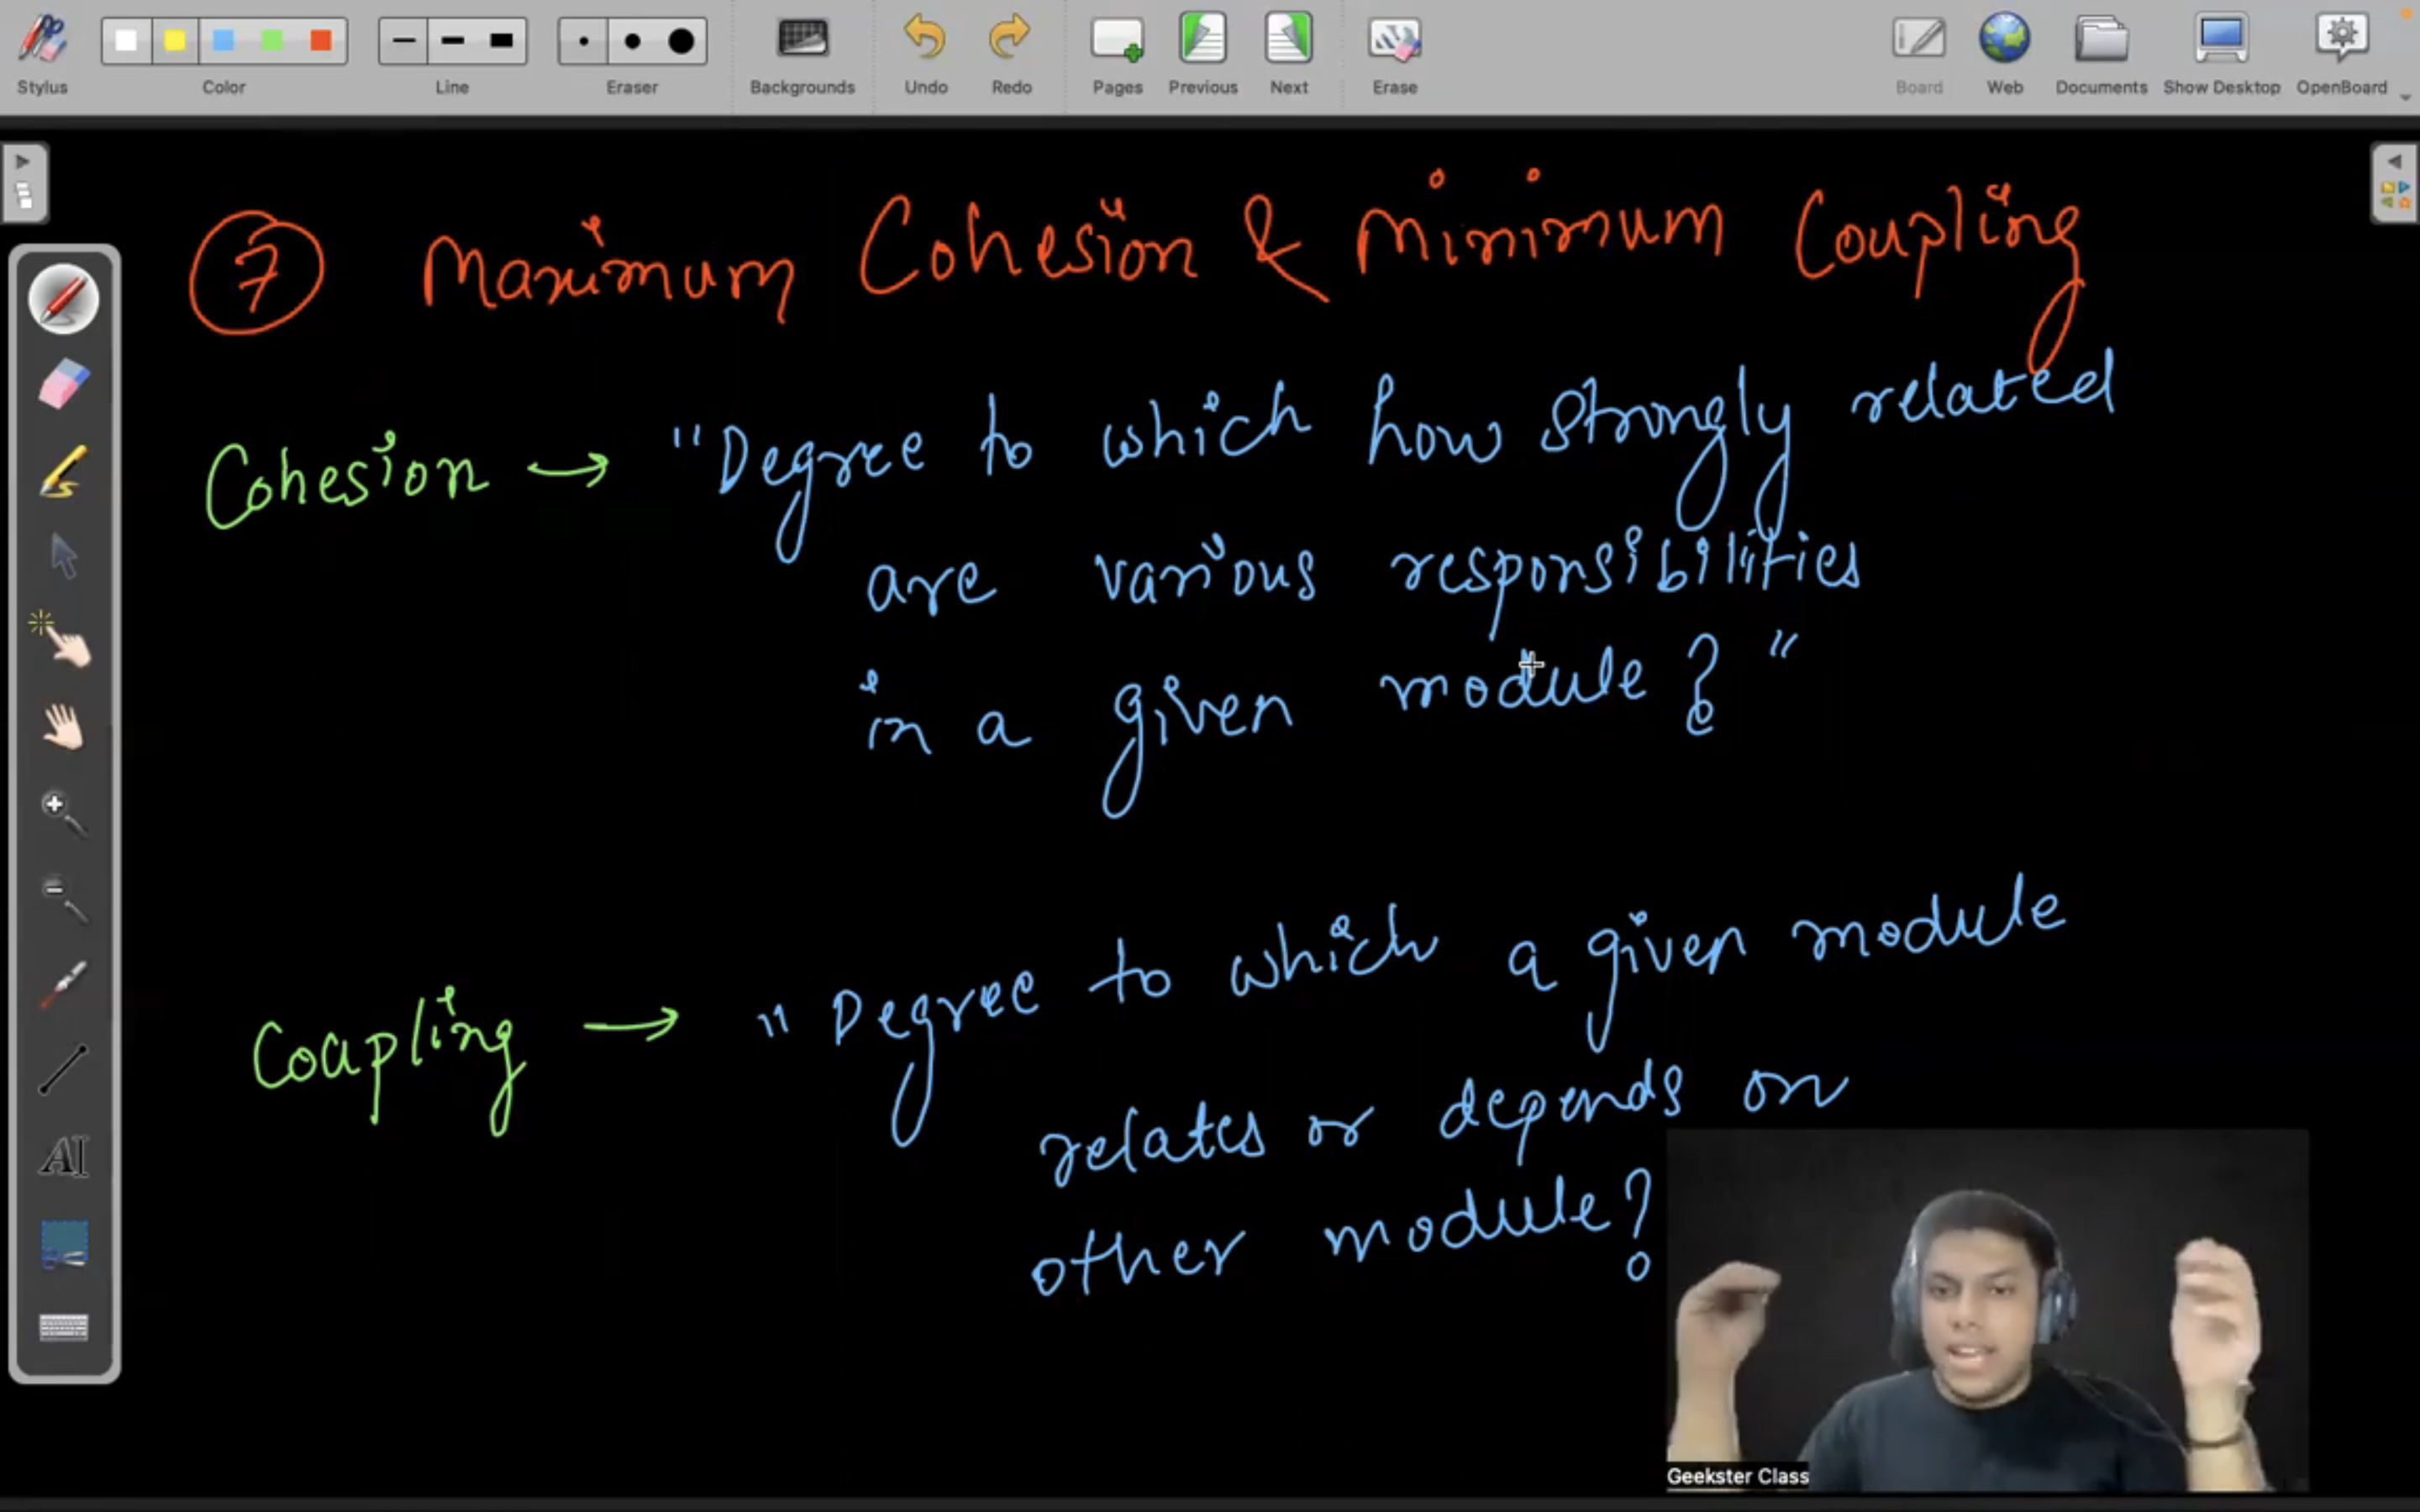 Stylus
Color
Line
Eraser
Backgrounds
Undo
Redo
Pages
Previous
Next
Erase
Board
Web
Documents
Show Desktop
OpenBoard
7 Maximum Cohesion & Minimum Coupling
Cohesion → "Degree to which how strongly related
are various responsibilities
in a given module ? "
Coupling → " Degree to which a given module
relates or depends on
other module?
AI
Geekster Class